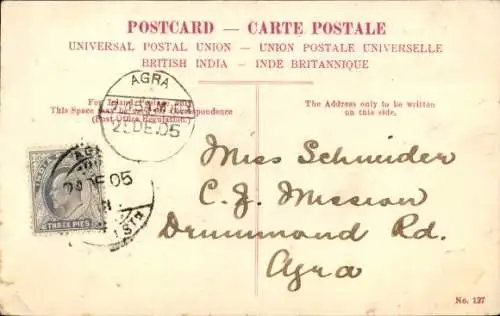 POSTCARD — CARTE POSTALE
UNIVERSAL POSTAL UNION — UNION POSTALE UNIVERSELLE
BRITISH INDIA — INDE BRITANNIQUE
AGRA
For Inland Postage only
This Space may be used for correspondence
(Post Office Regulation)
The Address only to be written
on this side.
DE.05
AGRA
05
THREE PIES
Miss Schneider
C. Z. Mission
Drummond Rd.
Agra
No. 127